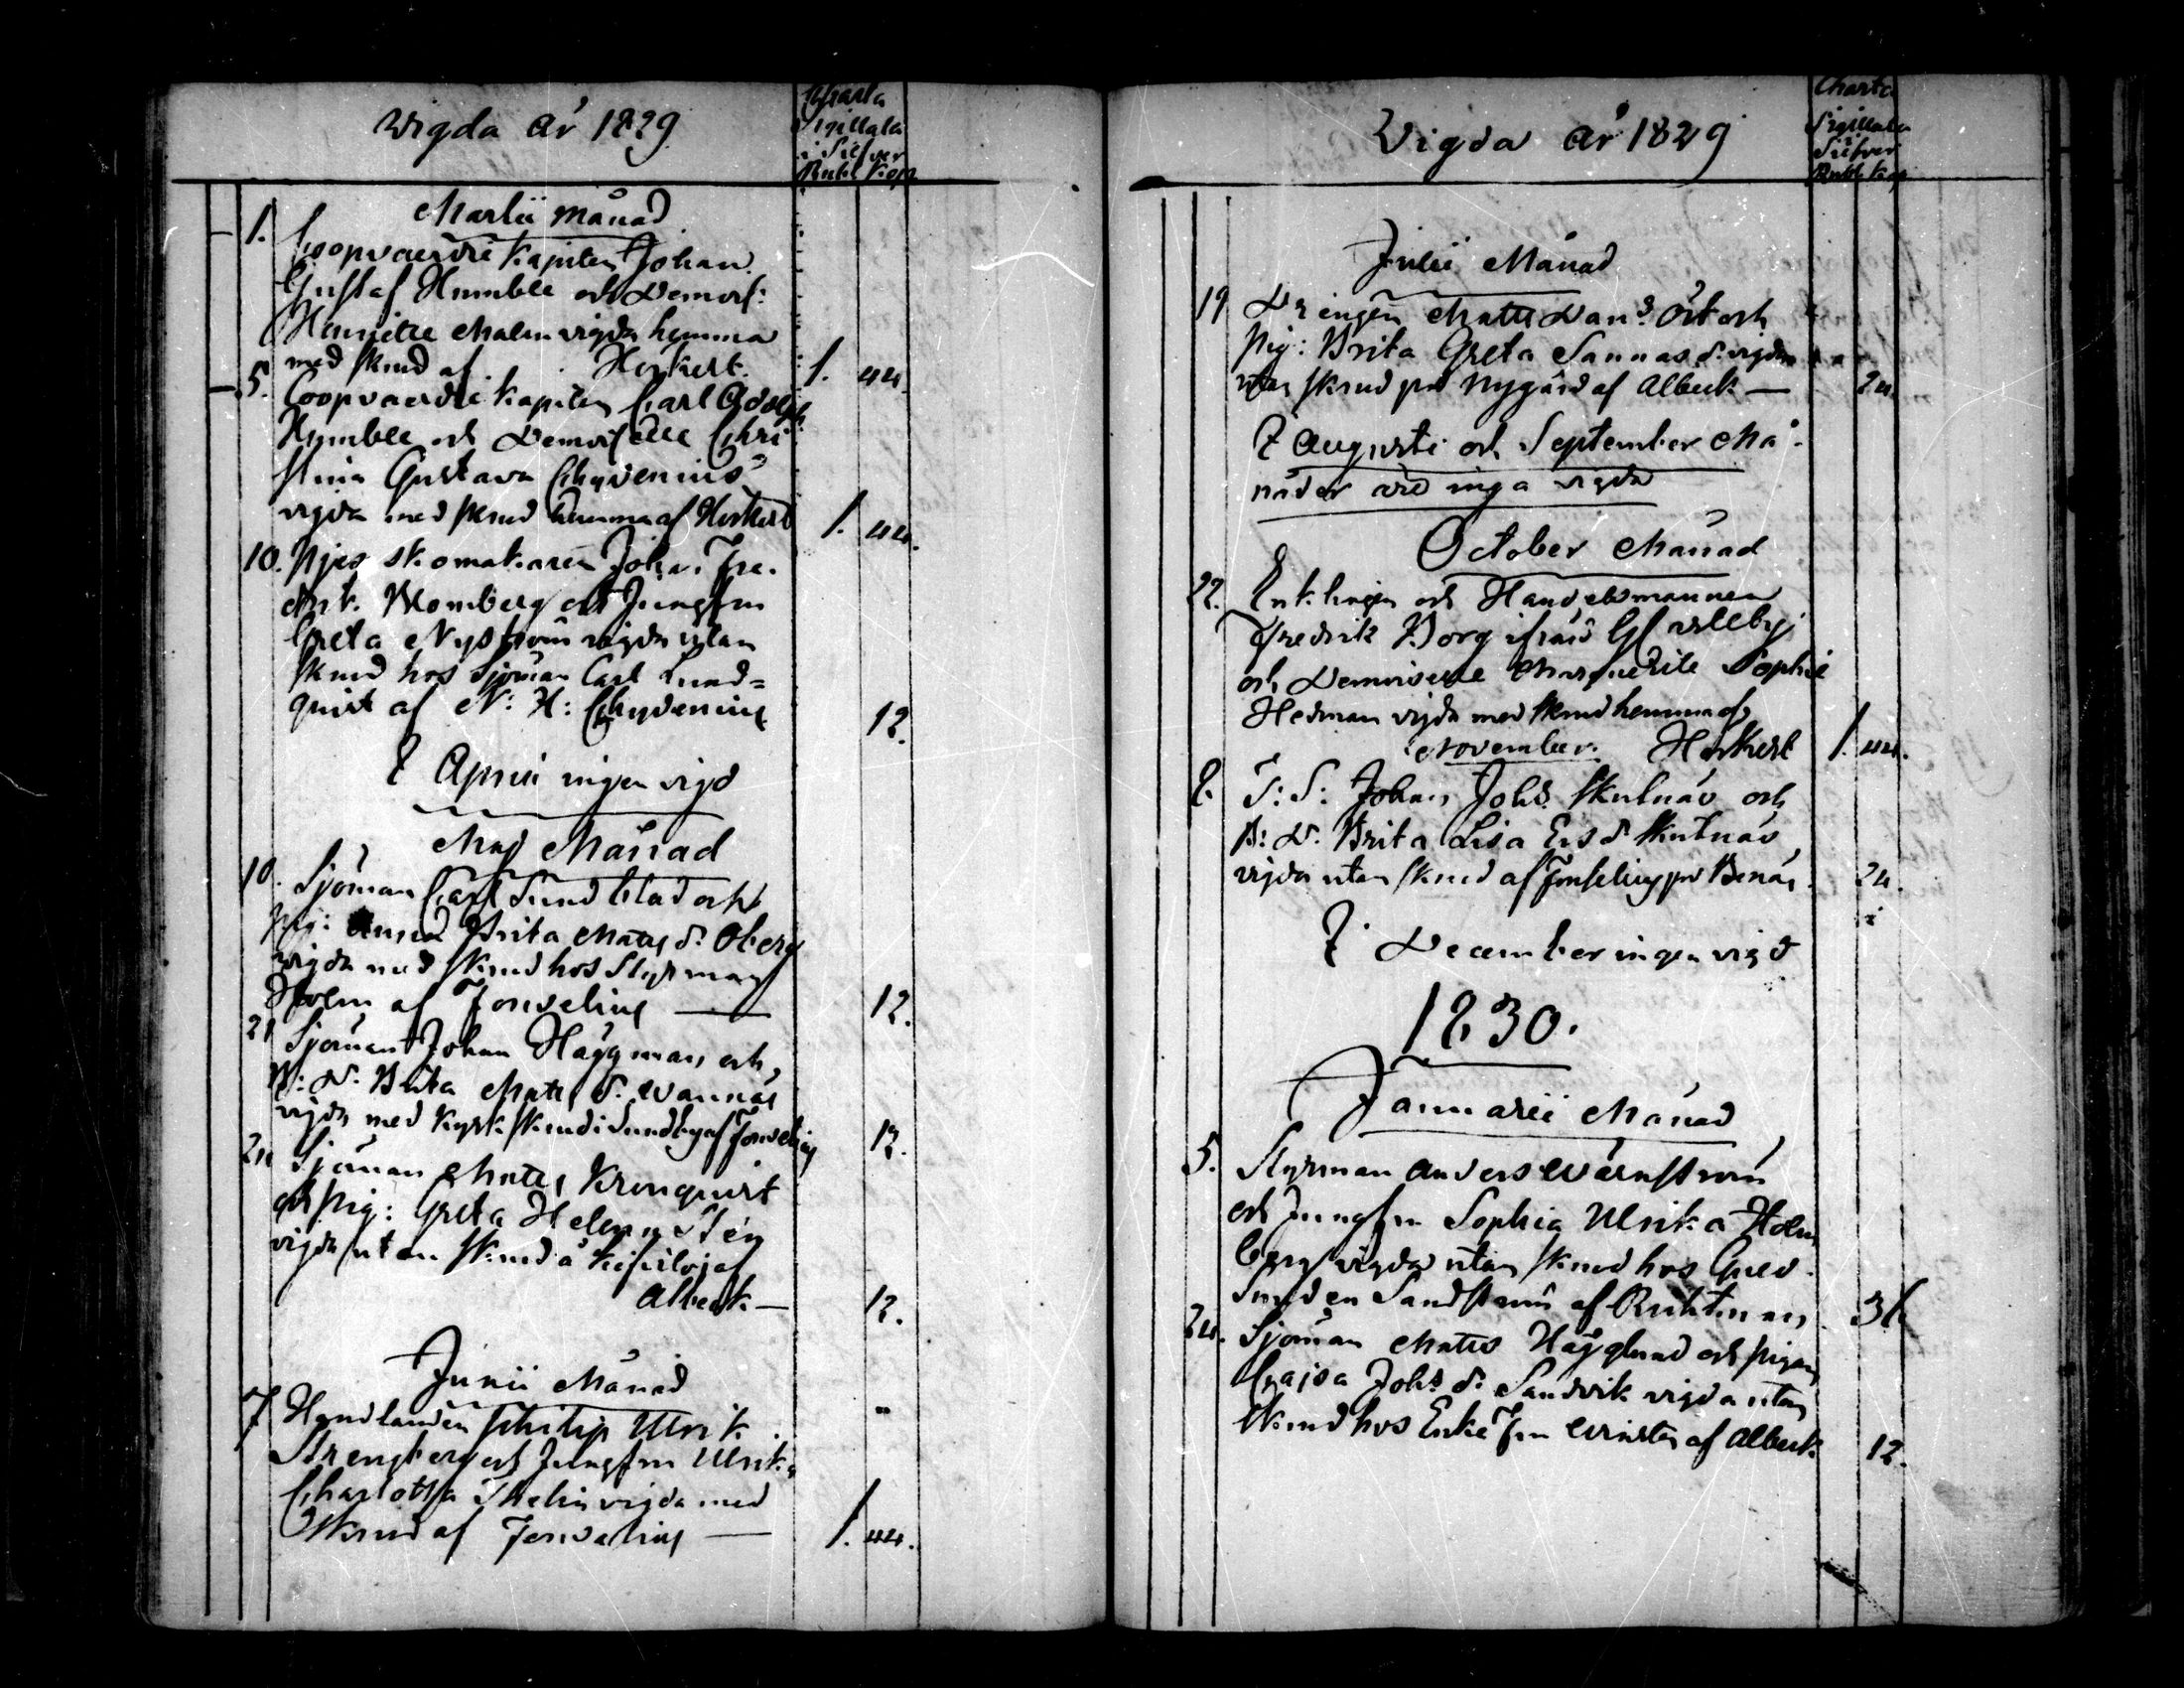 Vigda år 1829
Charta
Sigillata
i Silfver
Rubl Kop
Martii månad
1. Coopvaerdie Kapiten Johan
Gustaf Humble och Demois:
Henriette Malm vigda hemma
med skrud af Herkert. 1. 44.
5. Coopvaerdie Kapiten Carl Adolph
Humble och Demoiselle Chri
stina Gustava Chydenius
vigda med skrud hemma af Herkert 1. 44.
10. Skomakaren Joha. Fre.
drik. Blomberg och Jungfru
Greta Nyström vigda utan
skrud hos Sjöman Carl Lund=
quist af N: H: Chydenius 12.
I April ingen vigd
Maj Månad
10. Sjöman Carl Sundblad och
pig: Anna Brita Matts d. Öberg
vigda med skrud hos Styrman
Holm af Forselius — 12.
21 Sjöman Johan Häggman och
B: D. Brita Matts d. Wannäs
vigda med Kyrk skrud i Sundby af Forselius 12.
24 Sjöman Matts Kronquist
och pig: Greta Helena Stén
vigda utan skrud å Kisiloj af
Albeck — 12.
Junii Månad
7 Handlanden Philip Ulrik
Strengberg och Jungfru Ulrika
Charlotta Thelin vigda med
Skrud af Forselius — 1. 44.
Vigda år 1829
Charta
Sigillata
i
Silfver
Rubl Kop
Julii Månad
19 Drengen Matts Dans. Öst och
pig: Brita Greta Sannäs d. vigda
utan skrud på Nygård af Albeck — 24.
I Augusti och September Må-
nader äro inga vigda
October Månad
22. Enklingen och Handelsmannen
Fredrik Borg ifrån Gl Carleby
och Demoiselle Marguerite Sophie
Hedman vigda med skrud hemma af
November. Herkert 1. 44.
8. T: S: Johan Johs. Skutnäs och
B: D. Brita Lisa Ers d Skutnäs
vigda utan skrud af Forselius på Benäs. 24.
I December ingen vigd
1830.
Januarii Månad
5. Styrman Anders Wärnström
och Jungfru Sophia Ulrika Holm
berg vigda utan skrud hos Guld-
smeden Sandström af 36
24. Sjöman Matts Hägglund och pigan
Cajsa Johs d. Sandvik vigda utan
skrud hos Enke Fru Winsten af Albeck 12.